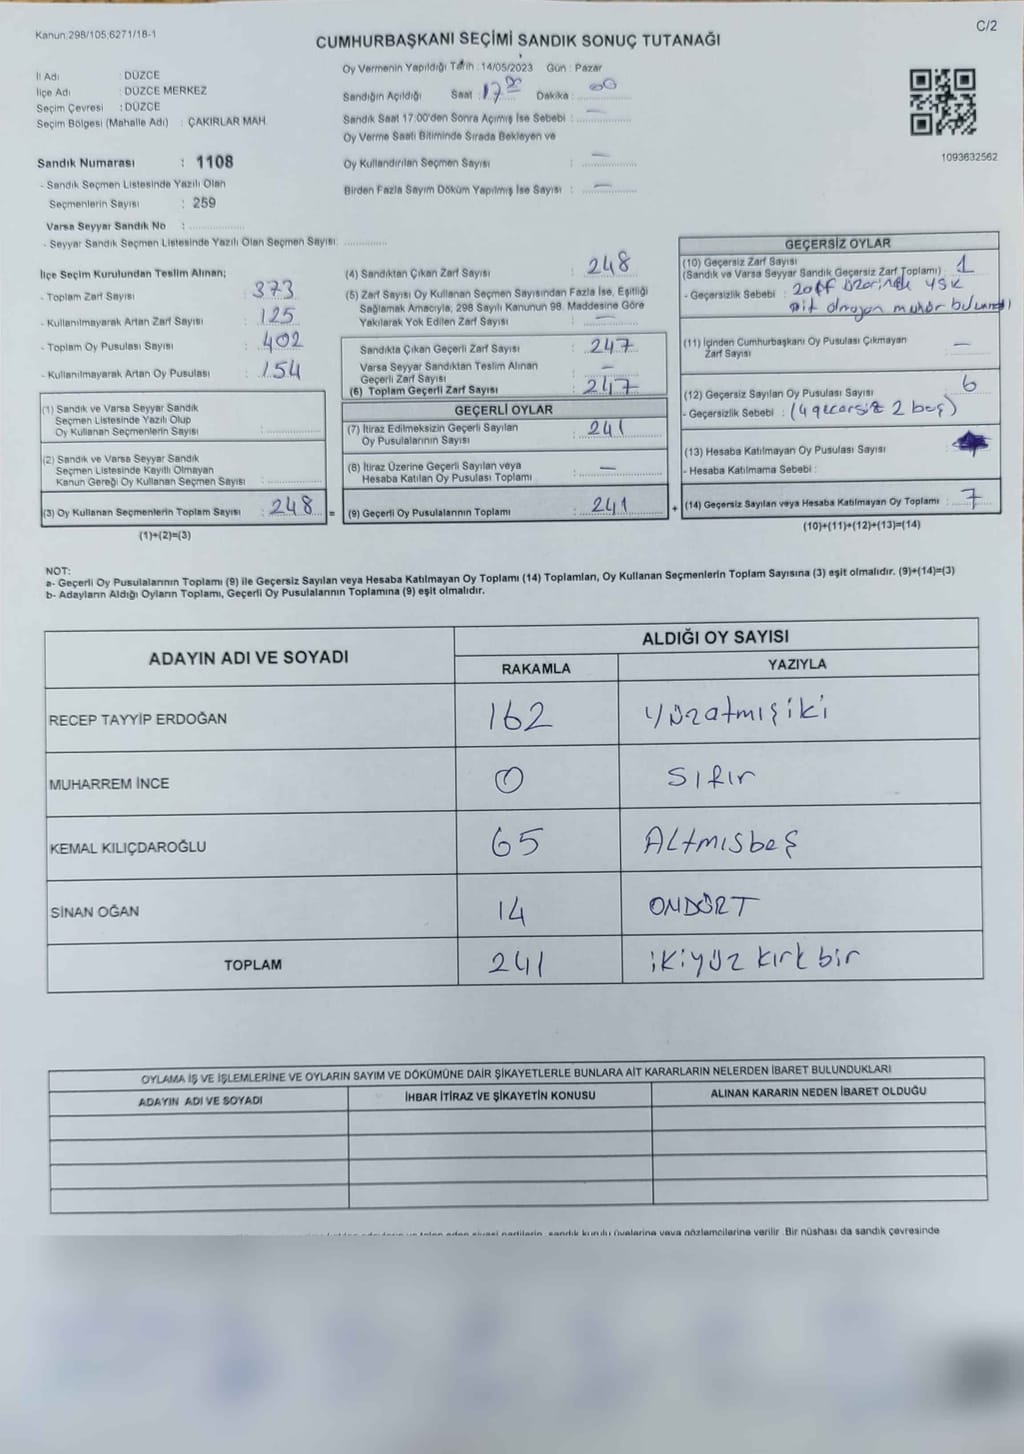 Kanun:298/105,6271/18-1
C/2
CUMHURBAŞKANI SEÇİMİ SANDIK SONUÇ TUTANAĞI
İl Adı : DÜZCE
İlçe Adı : DÜZCE MERKEZ
Seçim Çevresi : DÜZCE
Seçim Bölgesi (Mahalle Adı) : ÇAKIRLAR MAH.
Sandık Numarası : 1108
- Sandık Seçmen Listesinde Yazılı Olan
Seçmenlerin Sayısı : 259
Varsa Seyyar Sandık No :
- Seyyar Sandık Seçmen Listesinde Yazılı Olan Seçmen Sayısı:
Oy Vermenin Yapıldığı Tarih : 14/05/2023 Gün : Pazar
Sandığın Açıldığı Saat : 17 00 Dakika : 00
Sandık Saat 17:00'den Sonra Açımış İse Sebebi : —
Oy Verme Saati Bitiminde Sırada Bekleyen ve
Oy Kullandırılan Seçmen Sayısı : —
Birden Fazla Sayım Döküm Yapılmış İse Sayısı : —
1093632562
İlçe Seçim Kurulundan Teslim Alınan;
- Toplam Zarf Sayısı : 373
- Kullanılmayarak Artan Zarf Sayısı : 125
- Toplam Oy Pusulası Sayısı : 402
- Kullanılmayarak Artan Oy Pusulası : 154
(1) Sandık ve Varsa Seyyar Sandık
Seçmen Listesinde Yazılı Olup
Oy Kullanan Seçmenlerin Sayısı :
(2) Sandık ve Varsa Seyyar Sandık
Seçmen Listesinde Kayıtlı Olmayan
Kanun Gereği Oy Kullanan Seçmen Sayısı :
(3) Oy Kullanan Seçmenlerin Toplam Sayısı : 248 =
(1)+(2)=(3)
(4) Sandıktan Çıkan Zarf Sayısı : 248
(5) Zarf Sayısı Oy Kullanan Seçmen Sayısından Fazla İse, Eşitliği
Sağlamak Amacıyla, 298 Sayılı Kanunun 98. Maddesine Göre
Yakılarak Yok Edilen Zarf Sayısı : —
Sandıkta Çıkan Geçerli Zarf Sayısı : 247
Varsa Seyyar Sandıktan Teslim Alınan
Geçerli Zarf Sayısı : —
(6) Toplam Geçerli Zarf Sayısı : 247
GEÇERLİ OYLAR
(7) İtiraz Edilmeksizin Geçerli Sayılan
Oy Pusulalarının Sayısı : 241
(8) İtiraz Üzerine Geçerli Sayılan veya
Hesaba Katılan Oy Pusulası Toplamı : —
(9) Geçerli Oy Pusulalarının Toplamı : 241 +
GEÇERSİZ OYLAR
(10) Geçersiz Zarf Sayısı
(Sandık ve Varsa Seyyar Sandık Geçersiz Zarf Toplamı) : 1
- Geçersizlik Sebebi : üzerinde YSK
ait olmayan mühür
(11) İçinden Cumhurbaşkanı Oy Pusulası Çıkmayan
Zarf Sayısı : —
(12) Geçersiz Sayılan Oy Pusulası Sayısı : 6
- Geçersizlik Sebebi : (4 gecersiz 2 boş)
(13) Hesaba Katılmayan Oy Pusulası Sayısı
- Hesaba Katılmama Sebebi :
(14) Geçersiz Sayılan veya Hesaba Katılmayan Oy Toplamı : 7
(10)+(11)+(12)+(13)=(14)
NOT:
a- Geçerli Oy Pusulalarının Toplamı (9) ile Geçersiz Sayılan veya Hesaba Katılmayan Oy Toplamı (14) Toplamları, Oy Kullanan Seçmenlerin Toplam Sayısına (3) eşit olmalıdır. (9)+(14)=(3)
b- Adayların Aldığı Oyların Toplamı, Geçerli Oy Pusulalarının Toplamına (9) eşit olmalıdır.
ADAYIN ADI VE SOYADI
ALDIĞI OY SAYISI
RAKAMLA YAZIYLA
RECEP TAYYİP ERDOĞAN 162 Yüzatmışiki
MUHARREM İNCE 0 Sıfır
KEMAL KILIÇDAROĞLU 65 Altmısbeş
SİNAN OĞAN 14 ONDÖRT
TOPLAM 241 ikiyüz kırk bir
OYLAMA İŞ VE İŞLEMLERİNE VE OYLARIN SAYIM VE DÖKÜMÜNE DAİR ŞİKAYETLERLE BUNLARA AİT KARARLARIN NELERDEN İBARET BULUNDUKLARI
ADAYIN ADI VE SOYADI İHBAR İTİRAZ VE ŞİKAYETİN KONUSU ALINAN KARARIN NEDEN İBARET OLDUĞU
sandık kurulu üyelerine veya gözlemcilerine verilir. Bir nüshası da sandık çevresinde